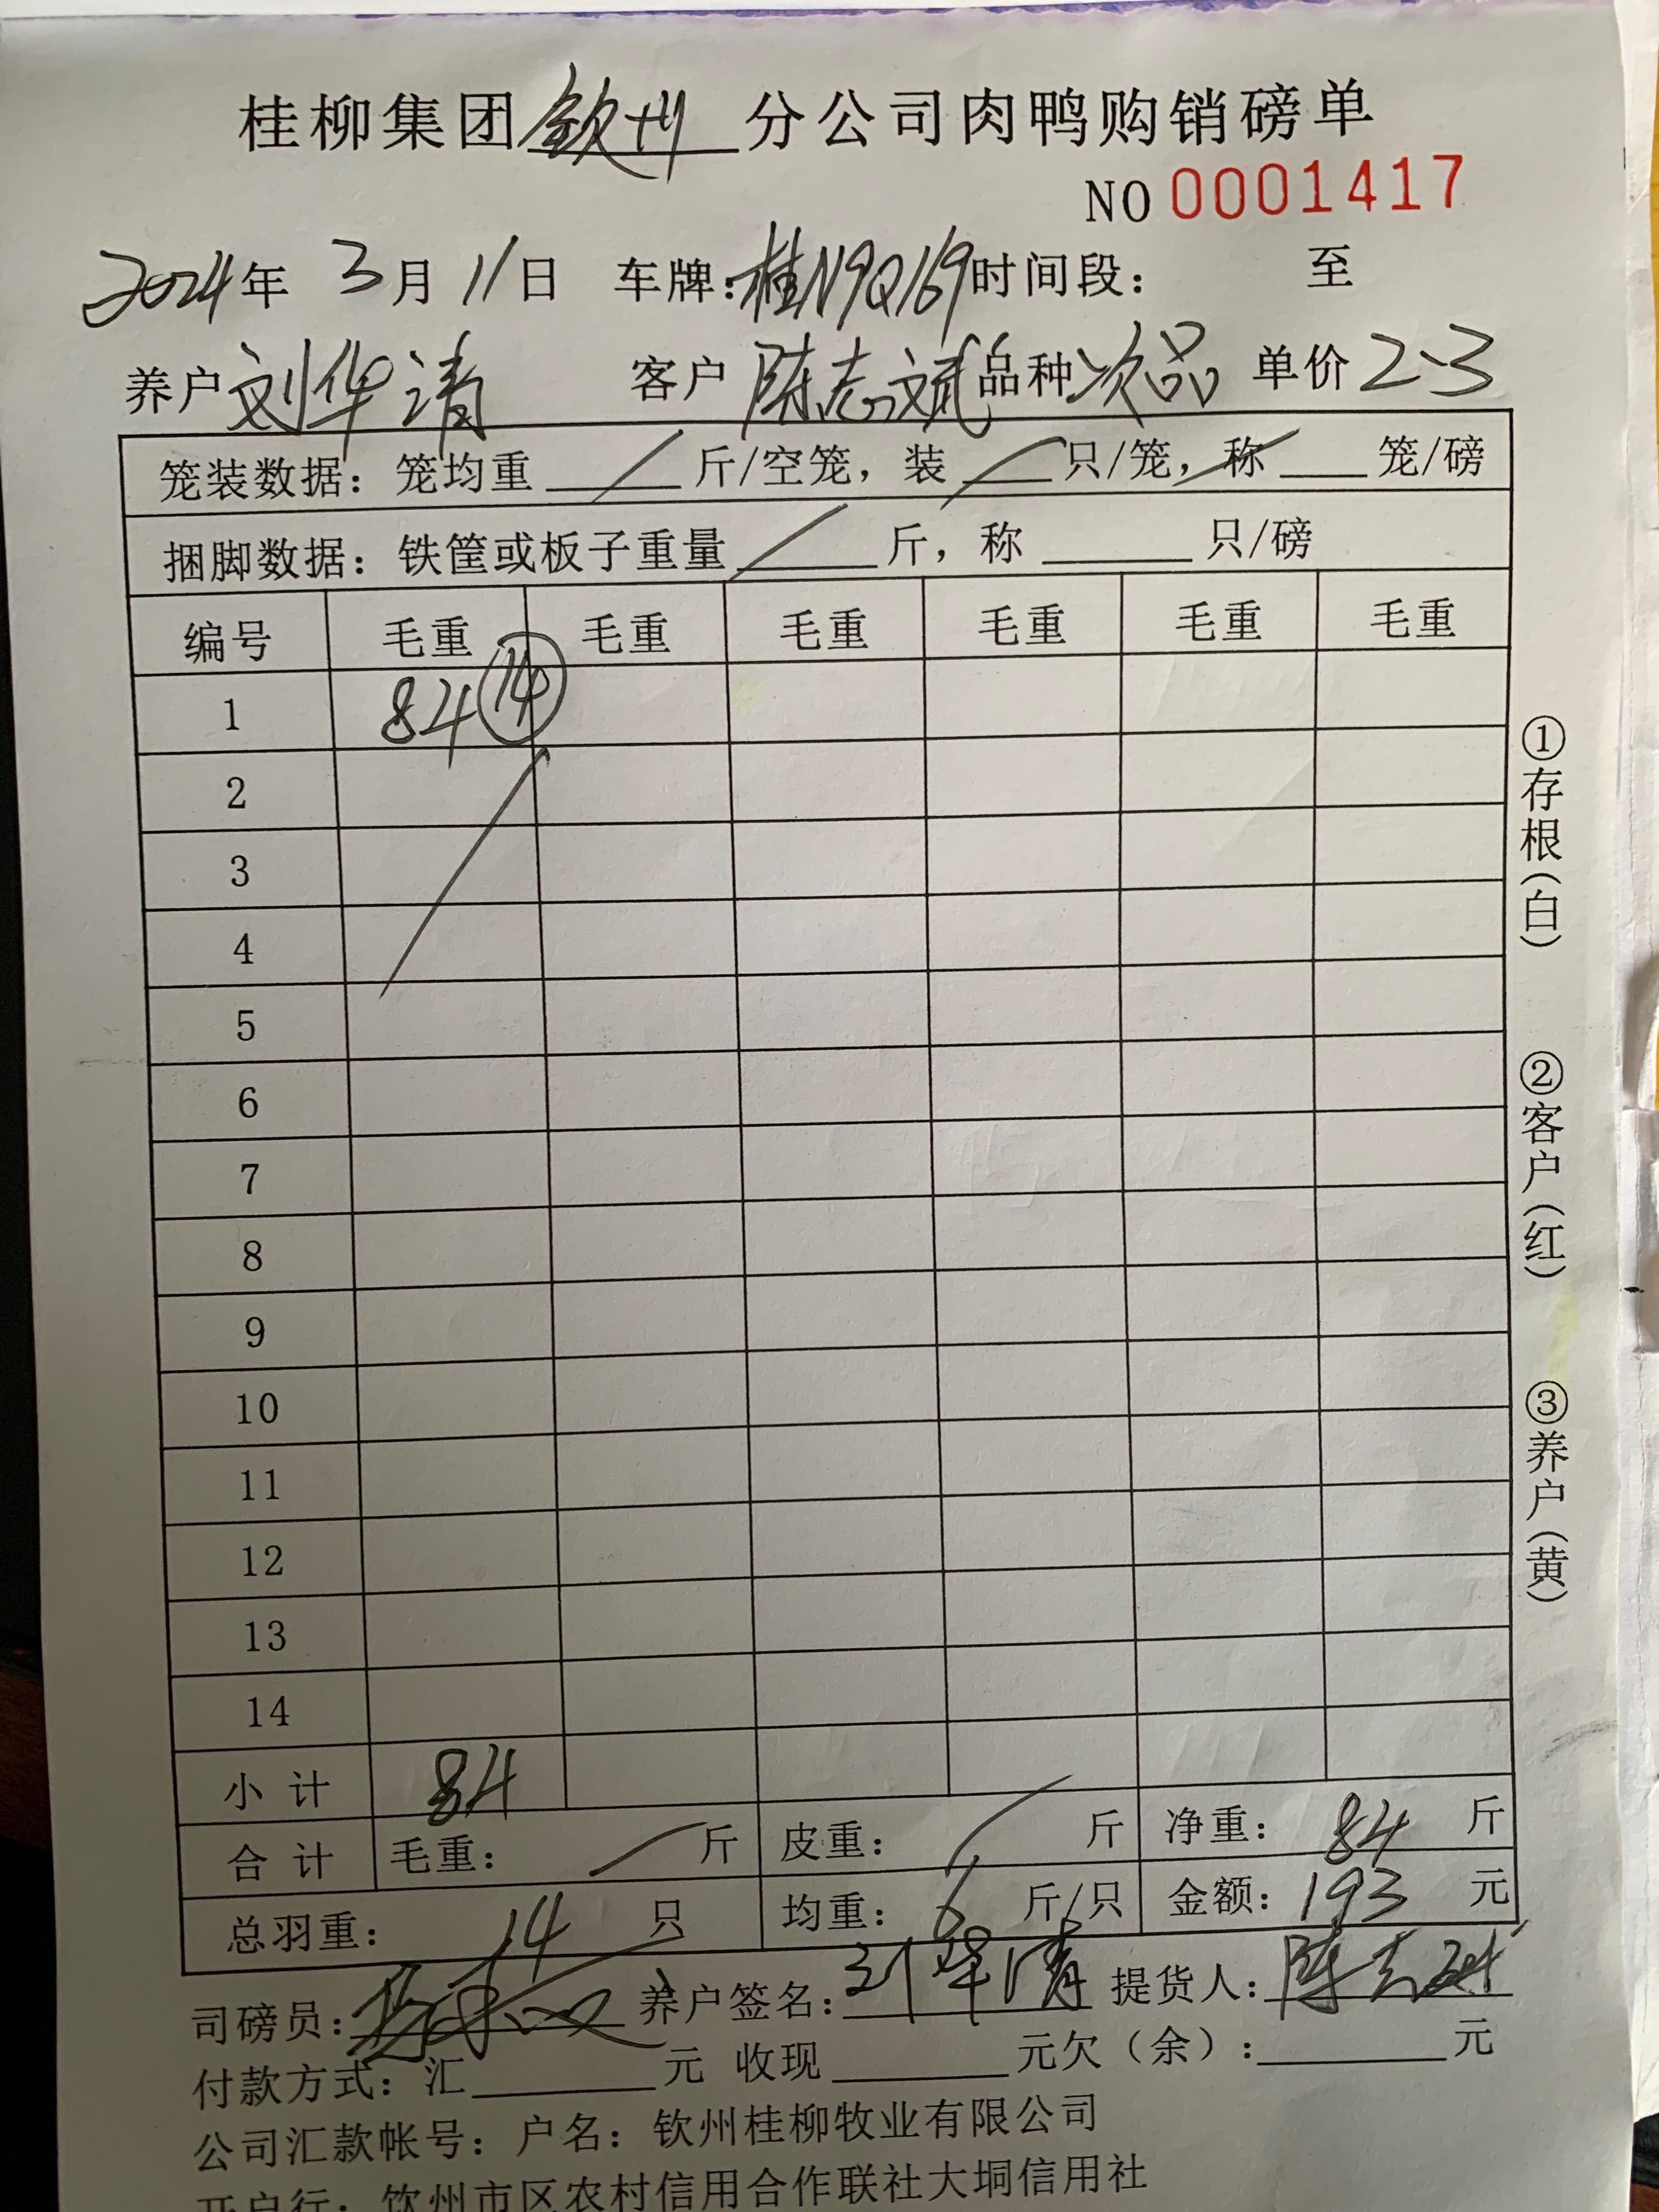 桂柳集团钦州分公司肉鸭购销磅单
NO 0001417
2024年 3月 11日 车牌:桂N9Q169时间段: 至
养户刘华清 客户 陈志斌品种次品 单价2.3
笼装数据:笼均重 斤/空笼,装 只/笼,称 笼/磅
捆脚数据:铁筐或板子重量 斤,称 只/磅
编号 毛重 毛重 毛重 毛重 毛重 毛重
1 84 14
2
3
4
5
6
7
8
9
10
11
12
13
14
小计 84
合计 毛重: 斤 皮重: 斤 净重: 84 斤
总羽重: 14 只 均重: 6 斤/只 金额: 193 元
司磅员: 养户签名:刘华清 提货人:陈志斌
付款方式:汇 元 收现 元欠(余): 元
公司汇款帐号:户名:钦州桂柳牧业有限公司
开户行:钦州市区农村信用合作联社大垌信用社
①存根(白)
②客户(红)
③养户(黄)